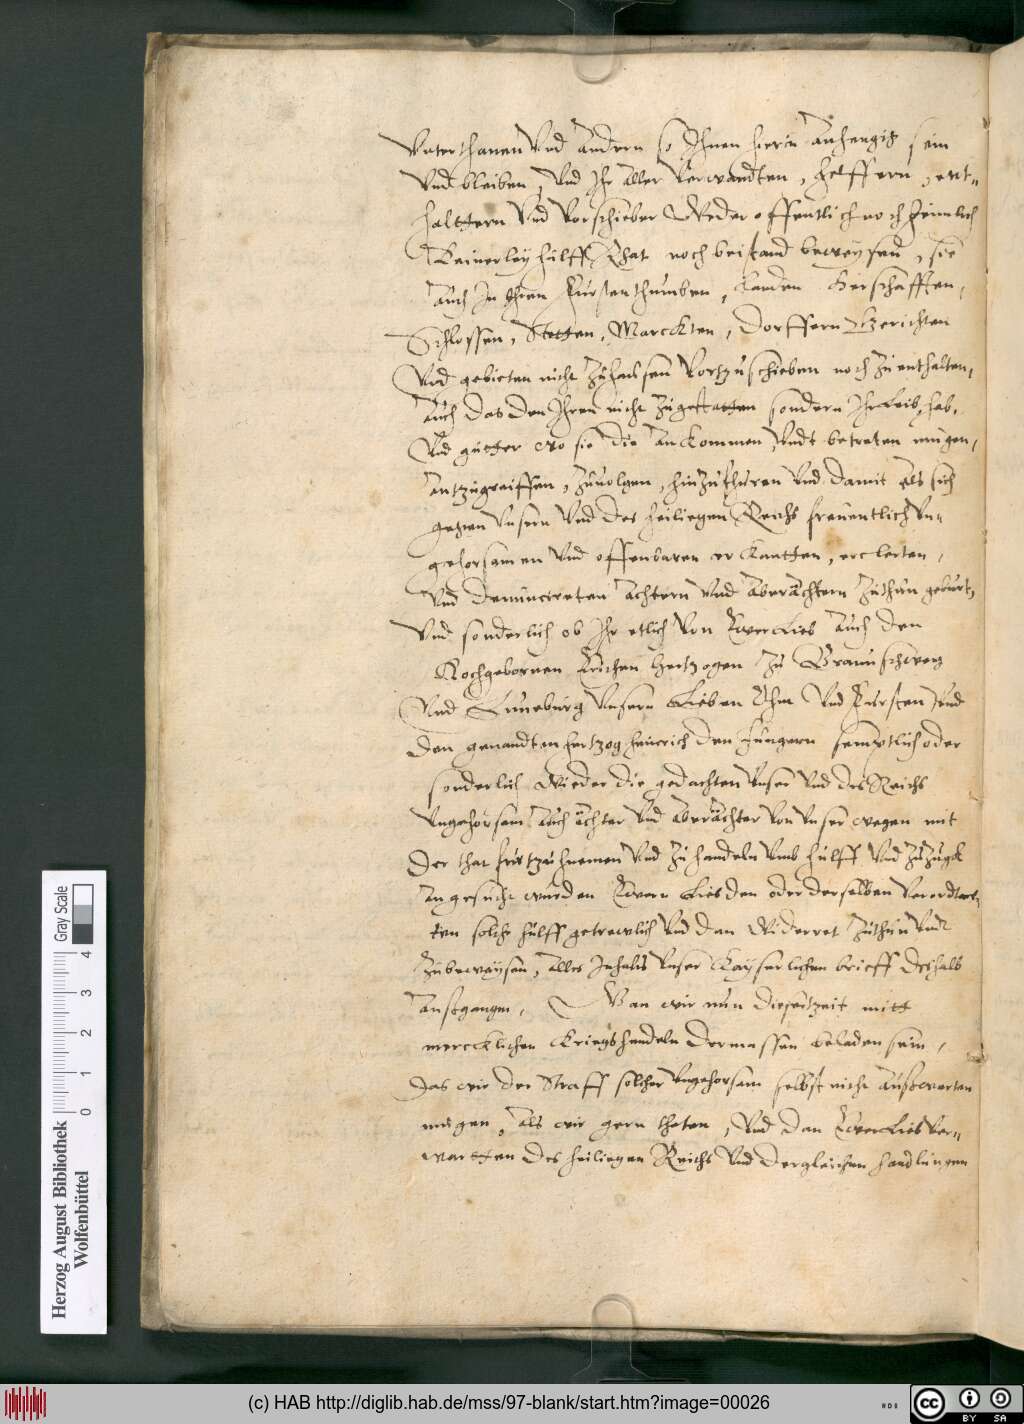 Vnterthanen Vnd Andern so Ihnen hierin Anhengig sein
Vnd bleiben, Vnd Ihr Aller Verwandten, helffern, ent=
halttern Vnd Vorschieber Weder offentlich noch heimlich
Keinerley hülff Rhat noch beistand beweysen, sie
Auch In Ihren Furstenthumben, Landen Herschafften,
Schlossen, Stetten, Marckten, Dorffern Gerichten
Vnd gebieten nicht Zuhausen Vortzuschieben noch Zu enthalten,
Auch das den Ihren nicht Zugestatten sondern Ihr Leib, hab,
Vnd gutter wo sie die Ankommen, Vndt betreten mugen,
Antzugreiffen, Zuuolgen, hinzufhuren Vnd damit Als sich
gegen Vnsern Vnd des heiliegen Reichs freuentlich Vn=
gehorsamen Vnd offenbaren erkantten, erclerten,
Vnd denuncireten Achtern Vnd Aberächtern Zuthun geburt,
Vnd sonderlich ob Ihr etlich Von Ewer Lieb Auch den
Hochgebornen Erichen Hertzogen Zu Braunschweig
Vnd Luneburg Vnsern Lieben Ohm Vnd Fursten Vnd
den genandten hertzog heinrich den Jungern semptlich oder
sonderlich Wieder die gedachten Vnser Vnd des Reichs
Vngehorsam Auch Ächter Vnd Aberächter Von Vnser wegen mit
Der that furtzuhnemen Vnd Zuhandeln Vmb hülff Vnd Zuzugk
Angesucht wurden Ewern Liebden oder derselben Verordt
ten solche hülff getrewlich Vnd dan Widerret Zuthun Vnd
Zubeweysen, Alles Inhalts Vnser Kayserlichen brieff deshalb
Ausgangen, Wan wir nun dieserzeit mitt
mercklichen Kriegshendeln dermassen beladen sein,
Das wir der Straff solcher Vngehorsam selbst nicht Außwarten
mugen, Als wir gern theten, Vnd dan Ewer Lieb Ver=
wartten des heiliegen Reichs Vnd dergleichen handlungen
Herzog August Bibliothek
Wolfenbüttel
Gray Scale
0 1 2 3 4
(c) HAB http://diglib.hab.de/mss/97-blank/start.htm?image=00026
cc BY SA